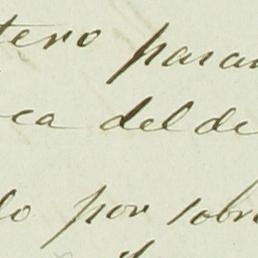 tero paran
ca del de
lo por sobre